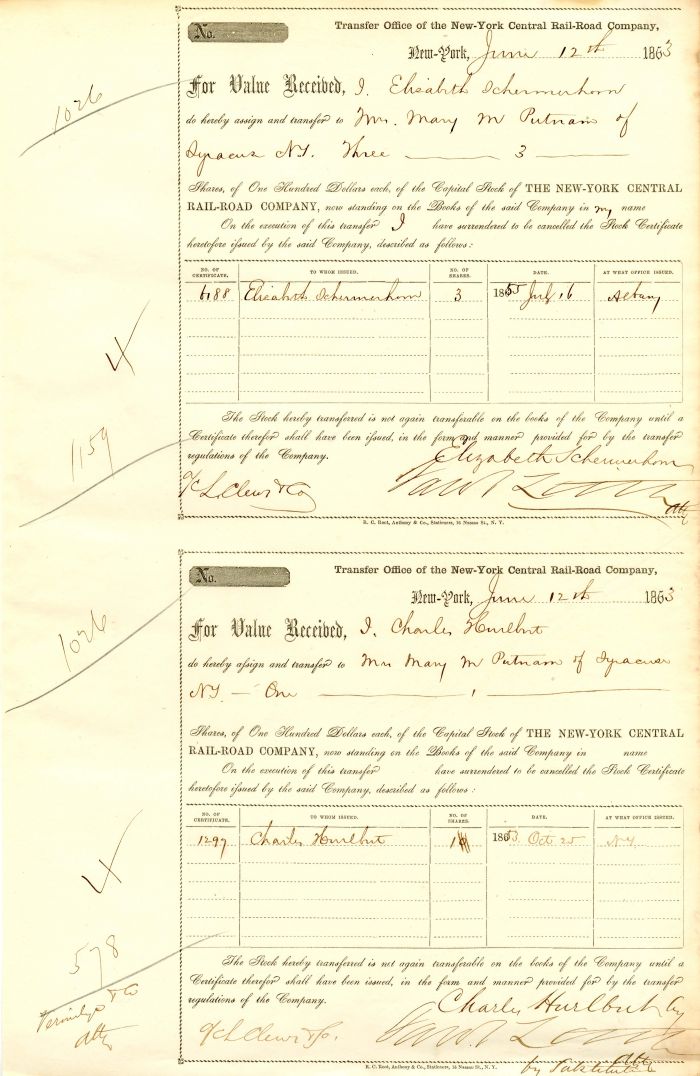 No.
Transfer Office of the New-York Central Rail-Road Company,
New-York, June 12th 1863
1026
For Value Received, I. Elizabeth Schermerhorn
do hereby assign and transfer to Mrs. Mary M Putnam of
Syracuse N.Y. Three — 3 —
Shares, of One Hundred Dollars each, of the Capital Stock of THE NEW-YORK CENTRAL
RAIL-ROAD COMPANY, now standing on the Books of the said Company in my name
On the execution of this transfer I have surrendered to be cancelled the Stock Certificate
heretofore issued by the said Company, described as follows:
NO. OF CERTIFICATE. TO WHOM ISSUED. NO. OF SHARES. DATE. AT WHAT OFFICE ISSUED.
6188 Elizabeth Schermerhorn 3 1855 July 16 Albany
4
The Stock hereby transferred is not again transferable on the books of the Company until a
Certificate therefor shall have been issued, in the form and manner provided for by the transfer
1159
regulations of the Company. Elizabeth Schermerhorn
H. L. Clews & Co
atty
R. C. Root, Anthony & Co., Stationers, 16 Nassau St., N. Y.
No.
Transfer Office of the New-York Central Rail-Road Company,
New-York, June 12th 1863
1026.
For Value Received, I. Charles Hurlbut
do hereby assign and transfer to Mrs Mary M Putnam of Syracuse
N.Y. — One — 1 —
Shares, of One Hundred Dollars each, of the Capital Stock of THE NEW-YORK CENTRAL
RAIL-ROAD COMPANY, now standing on the Books of the said Company in name
On the execution of this transfer have surrendered to be cancelled the Stock Certificate
heretofore issued by the said Company, described as follows:
NO. OF CERTIFICATE. TO WHOM ISSUED. NO. OF SHARES. DATE. AT WHAT OFFICE ISSUED.
1297 Charles Hurlbut 1 1853 Oct 25 N.Y.
4
The Stock hereby transferred is not again transferable on the books of the Company until a
578
Certificate therefor shall have been issued, in the form and manner provided for by the transfer
regulations of the Company. Charles Hurlbut by
Vermilye & Co
atty
atty
by Substitute
R. C. Root, Anthony & Co., Stationers, 16 Nassau St., N. Y.